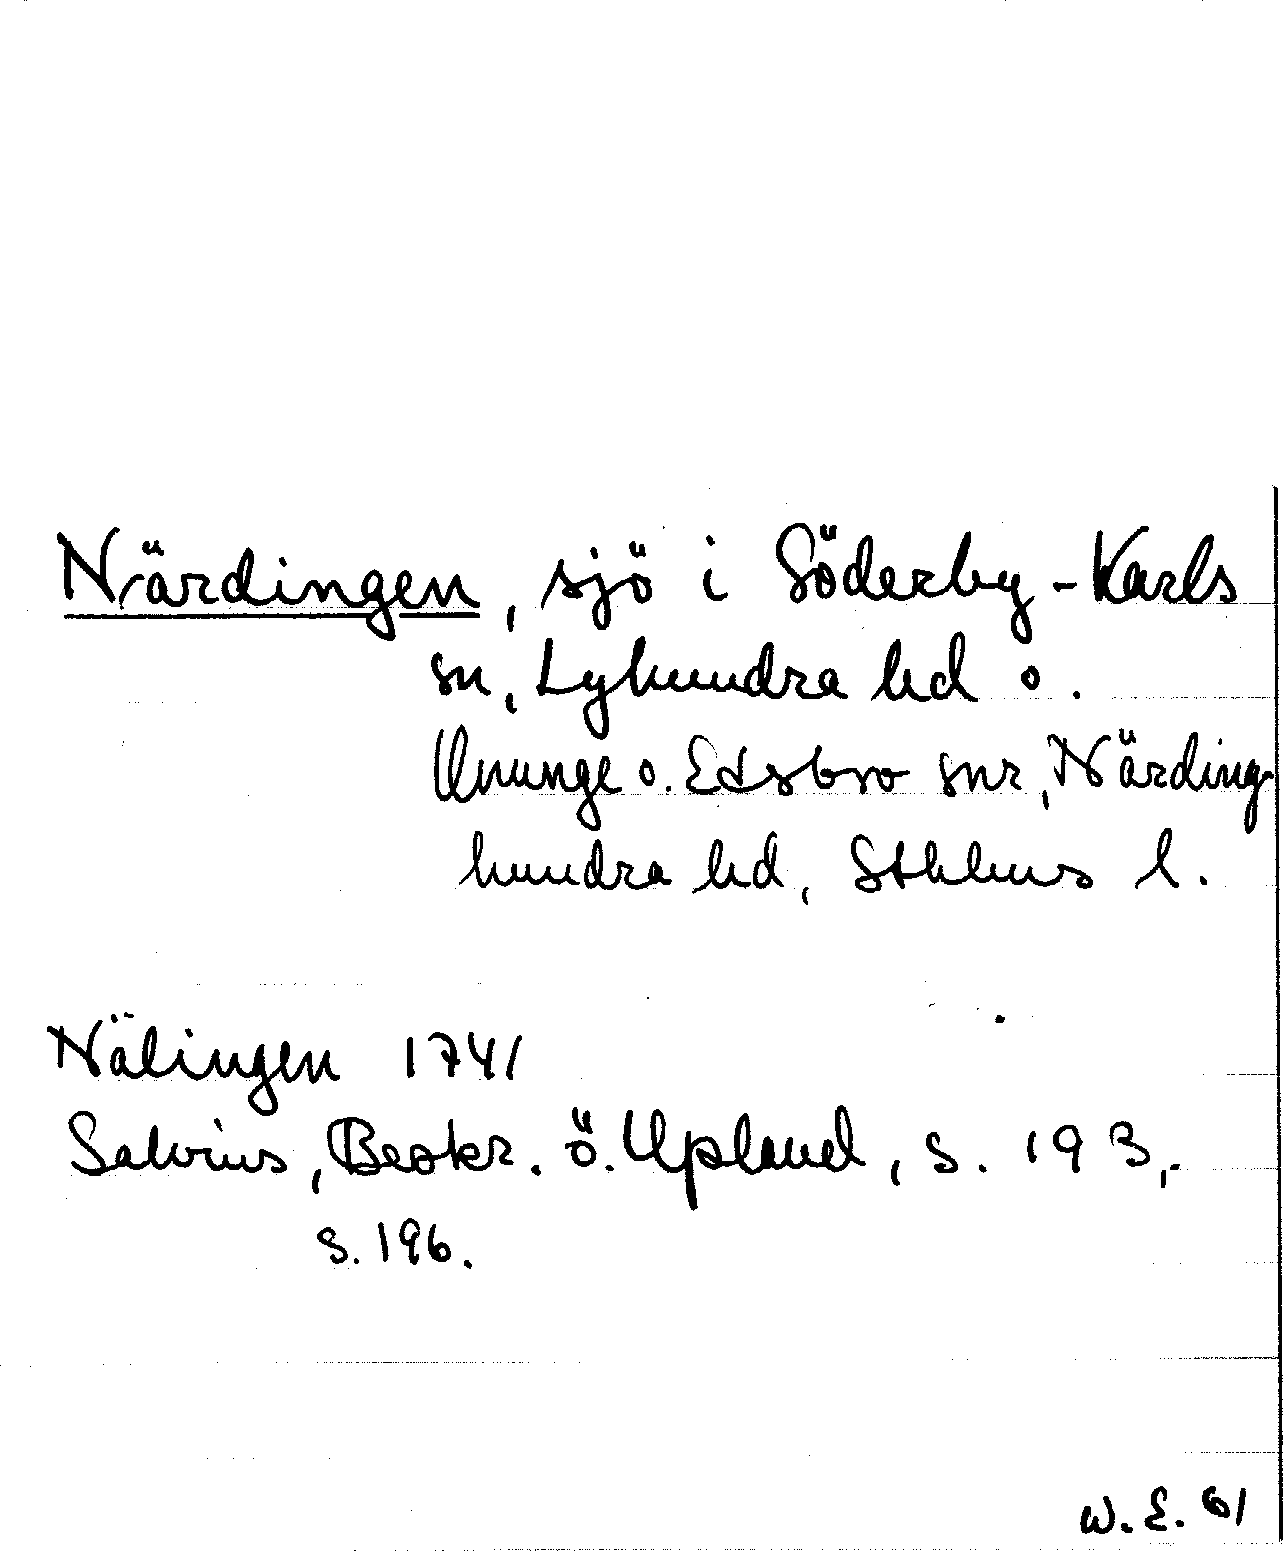 Närdingen, sjö i Söderby-Karls
sn, Lyhundra hd o.
Ununge o. Edsbro snr, Närding-
hundra hd, Sthlms l.
Nälingen 1741
Salvius, Beskr. ö. Upland, s. 193,
s. 196.
W. E. 61